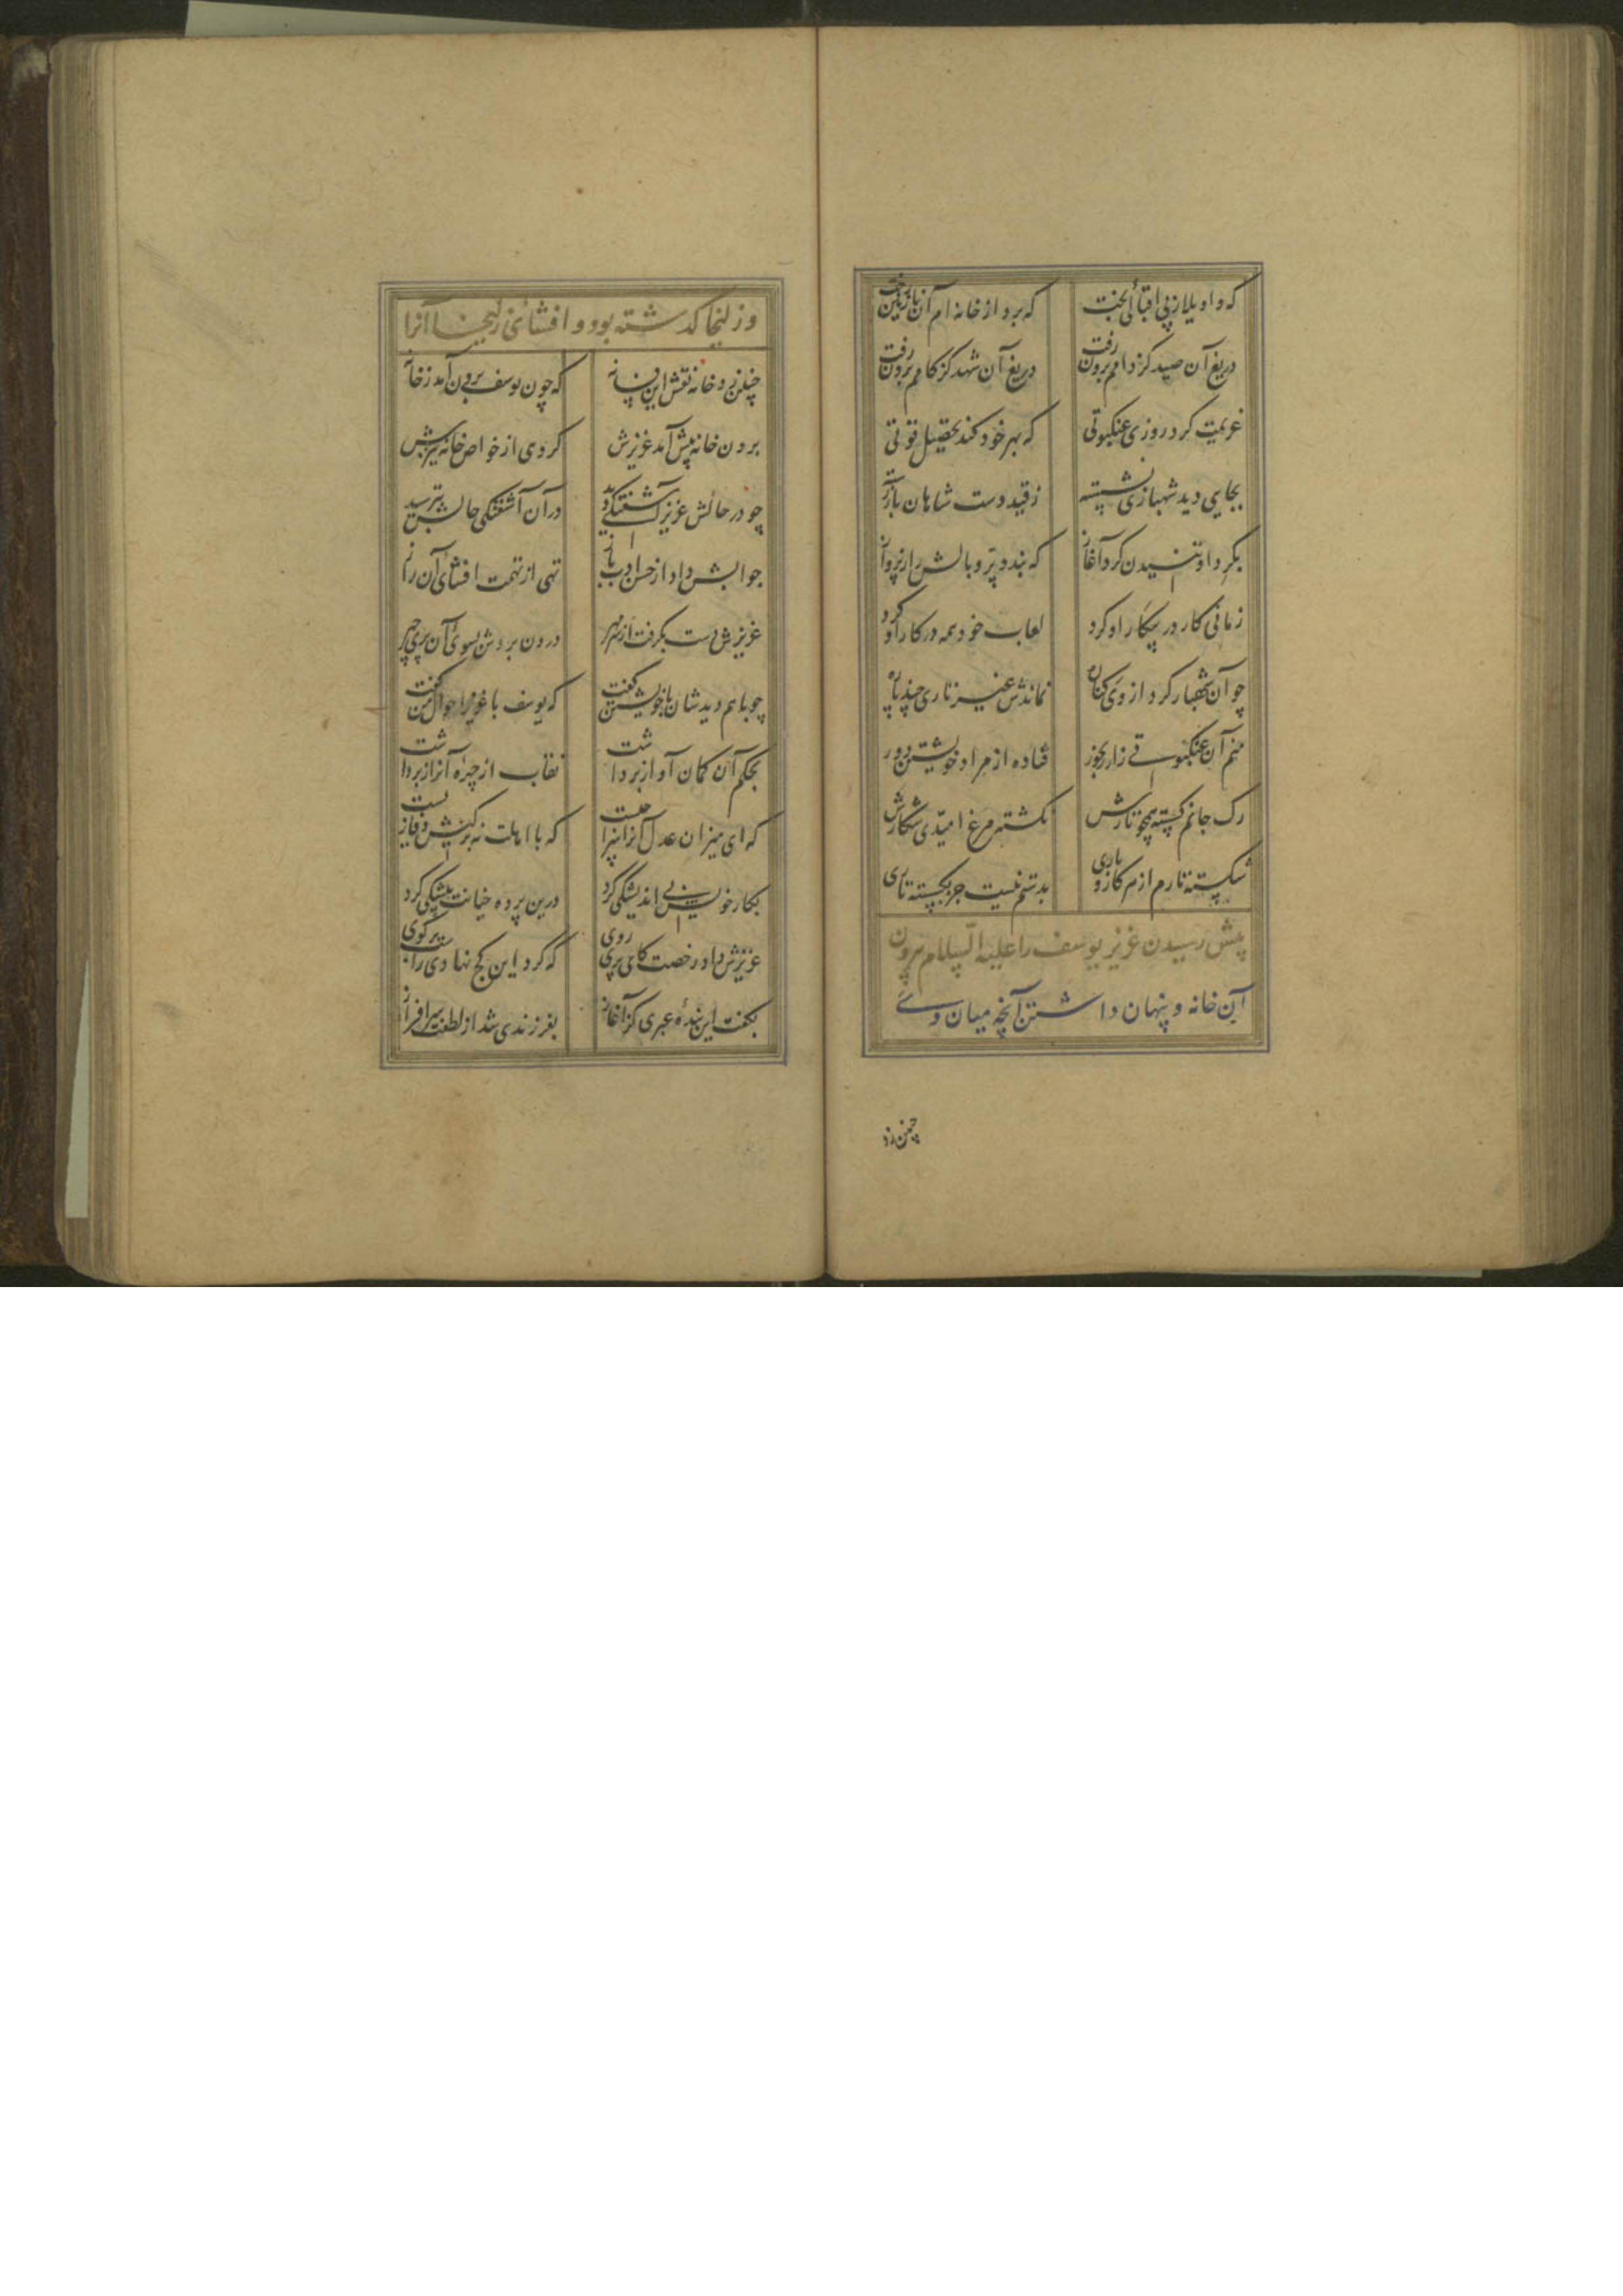 که واویلا ز بی اقبالی بخت که برد از خانه ام آن نازنین رخت
دریغ آن صید کز دامم برون رفت دریغ آن شهد کز کامم برون رفت
عزیمت کرد روزی عنکبوتی که بهر خود کند تحصیل قوتی
بجایی دید شهبازی نشسته ز قید دست شاهان باز رسته
بگرد او تنیدن کرد آغاز که بندد پر و بالش را ز پرواز
زمانی کار در پیکار او کرد لعاب خود همه در کار او کرد
چو آن شهباز کرد از وی کناره نماندش غیر تاری چند پاره
منم آن عنکبوتی زار رنجور فتاده از مراد خویشتن دور
رگ جانم گسسته همچو تارش نگشته مرغ امیدی شکارش
گسسته تارم از هر کار و باری بدستم نیست جز بگسسته تاری
پیش رسیدن عزیز یوسف را علیه السلام بیرون
آین خانه و پنهان داشتن آنچه میان وے
چنین زد
وز لیخا کذشته بود و افشائی زلیخا آنرا
چنین زد خامه نقش این فسانه که چون یوسف برون آمد ز خانه
برون خانه پیش آمد عزیزش گروی از خواص خانه نیزش
چو در حالش عزیز آشفتگی دید در آن آشفتگی حالش بپرسید
جوابش داد از حسن ادب باز تهی از تهمت افشای آن راز
عزیزش دست بگرفت از سر مهر درون بردش بسوی آن پری چهر
چو باهم دیدشان با خویشتن گفت که یوسف با عزیز احوال من گفت
بحکم آن گمان آواز برداشت نقاب از چهره آن راز برداشت
که ای میزان عدل آنرا سزا چیست که با اهلت نه بر کیش وفا زیست
بکار خویش بی اندیشگی کرد درین پرده خیانت پیشگی کرد
عزیزش داد رخصت کای پری روی که کرد این کج نهادی راست برگوی
بگفت این بنده عبری کز آغاز بفرزندی شد از لطفت سرافراز